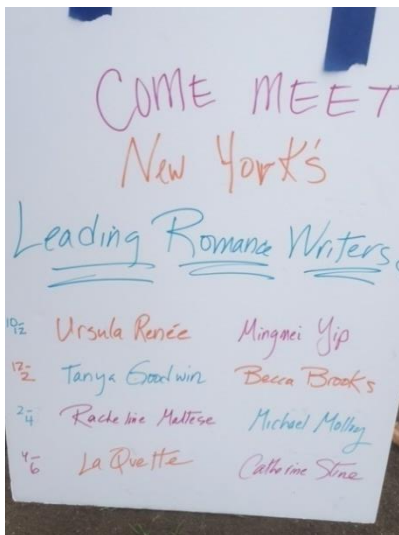 COME MEET
New York's
Leading Romance Writers.
10-12 Ursula Renée Mingmei Yip
12-2 Tanya Goodwin Becca Brooks
2-4 Racheline Maltese Michael Molloy
4-6 La Quette Catherine Stine